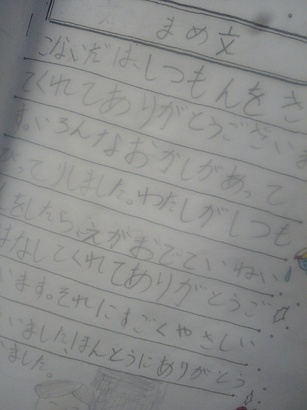 まめ文
こないだは、しつもんをき
てくれてありがとうござい
す。いろんなおかしがあって
びっくりしました。わたしがしつも
んをしたら、えがおでていねい
はなしてくれてありがとうご
います。それにすごくやさしい
いました。ほんとうにありがとう
いました。